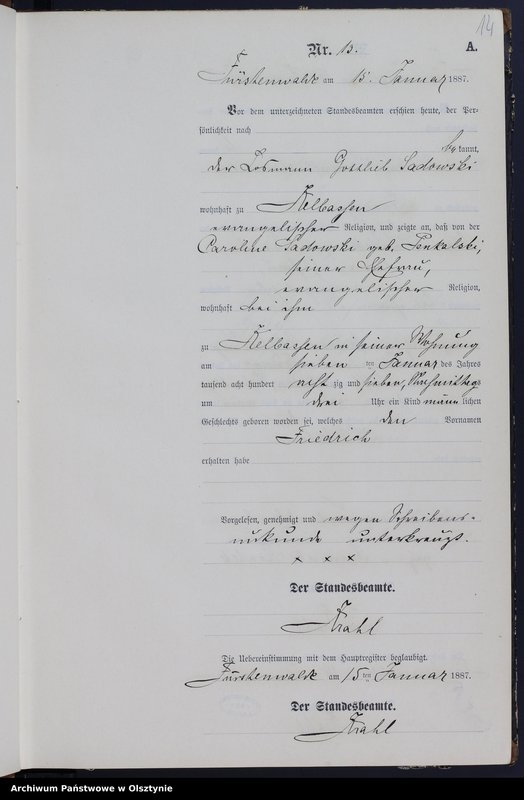 14
Nr. 13.
A.
Fürstenwalde am 15. Januar 1887.
Vor dem unterzeichneten Standesbeamten erschien heute, der Per-
sönlichkeit nach
bekannt,
der Losmann Gottlieb Sadowski
wohnhaft zu Kelbassen
evangelischer Religion, und zeigte an, daß von der
Caroline Sadowski geb. Penkalski,
seiner Ehefrau,
evangelischer Religion,
wohnhaft bei ihm
zu Kelbassen in seiner Wohnung
am sieben ten Januar des Jahres
tausend acht hundert acht zig und sieben, Nachmittags
um drei Uhr ein Kind männlichen
Geschlechts geboren worden sei, welches den Vornamen
Friedrich
erhalten habe
Vorgelesen, genehmigt und wegen Schreibens-
unkunde unterkreuzt.
x x x
Der Standesbeamte.
Krahl
Die Uebereinstimmung mit dem Hauptregister beglaubigt.
Fürstenwalde am 15ten Januar 1887.
Der Standesbeamte.
Krahl
Archiwum Państwowe w Olsztynie